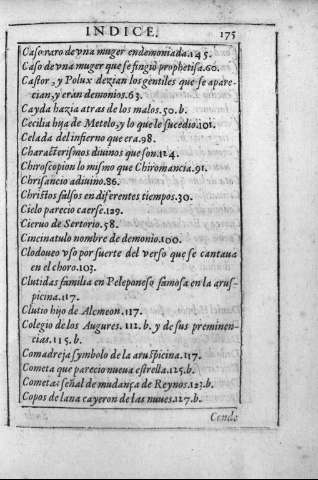 INDICE. 175
Caso raro de vna muger endemoniada.145.
Caso de vna muger que se fingiò prophetisa.60.
Castor, y Polux dezian los gentiles que se apare-
cian, y eran demonios.63.
Cayda hazia atras de los malos.50.b.
Cecilia hija de Metelo, y lo que le sucedio.101.
Celada del infierno que era.98.
Characterismos diuinos que son.124.
Chiroscopion lo mismo que Chiromancia.91.
Chrisancio adiuino.86.
Christos falsos en diferentes tiempos.30.
Cielo parecio caerse.129.
Cieruo de Sertorio.58.
Cincinatulo nombre de demonio.100.
Clodoueo vso por suerte del verso que se cantaua
en el choro.103.
Clutidas familia en Peleponeso famosa en la arus-
picina.117.
Clutio hijo de Alcmeon.117.
Colegio de los Augures. 112.b. y de sus preminen-
cias.115.b.
Comadreja symbolo de la aruspicina.117.
Cometa que parecio nueua estrella.125.b.
Cometas señal de mudança de Reynos.123.b.
Copos de lana cayeron de las nuues.127.b.
Conde